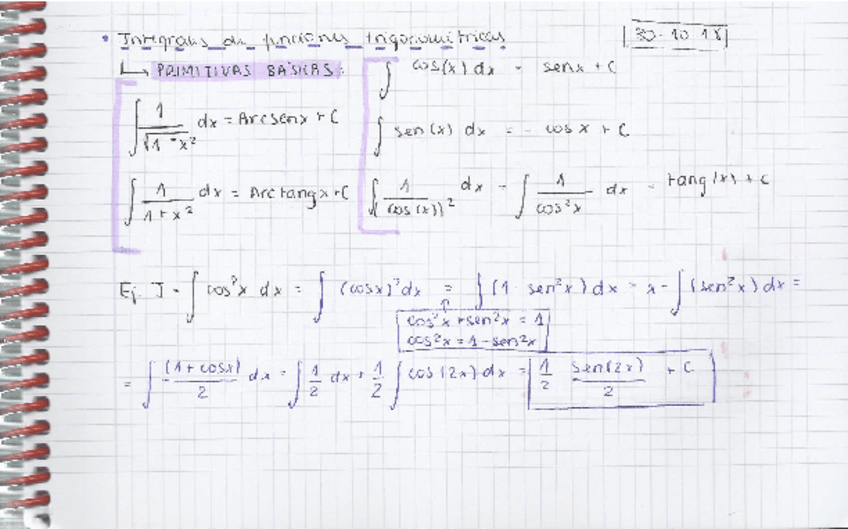 • Integrales de funciones trigonométricas |30-10-18|
↳ PRIMITIVAS BÁSICAS:
∫ cos(x) dx = senx + C
∫ 1/√(1-x²) dx = Arcsenx + C
∫ sen(x) dx = -cosx + C
∫ 1/(1+x²) dx = Arctangx + C
∫ 1/(cos(x))² dx = ∫ 1/cos²x dx = tang(x) + C
Ej. I = ∫ cos²x dx = ∫ (cosx)² dx = ∫ (1 - sen²x) dx = x - ∫ (sen²x) dx =
cos²x + sen²x = 1
cos²x = 1 - sen²x
= ∫ (1 + cosx)/2 dx = ∫ 1/2 dx + 1/2 ∫ cos(2x) dx = 1/2 sen(2x)/2 + C